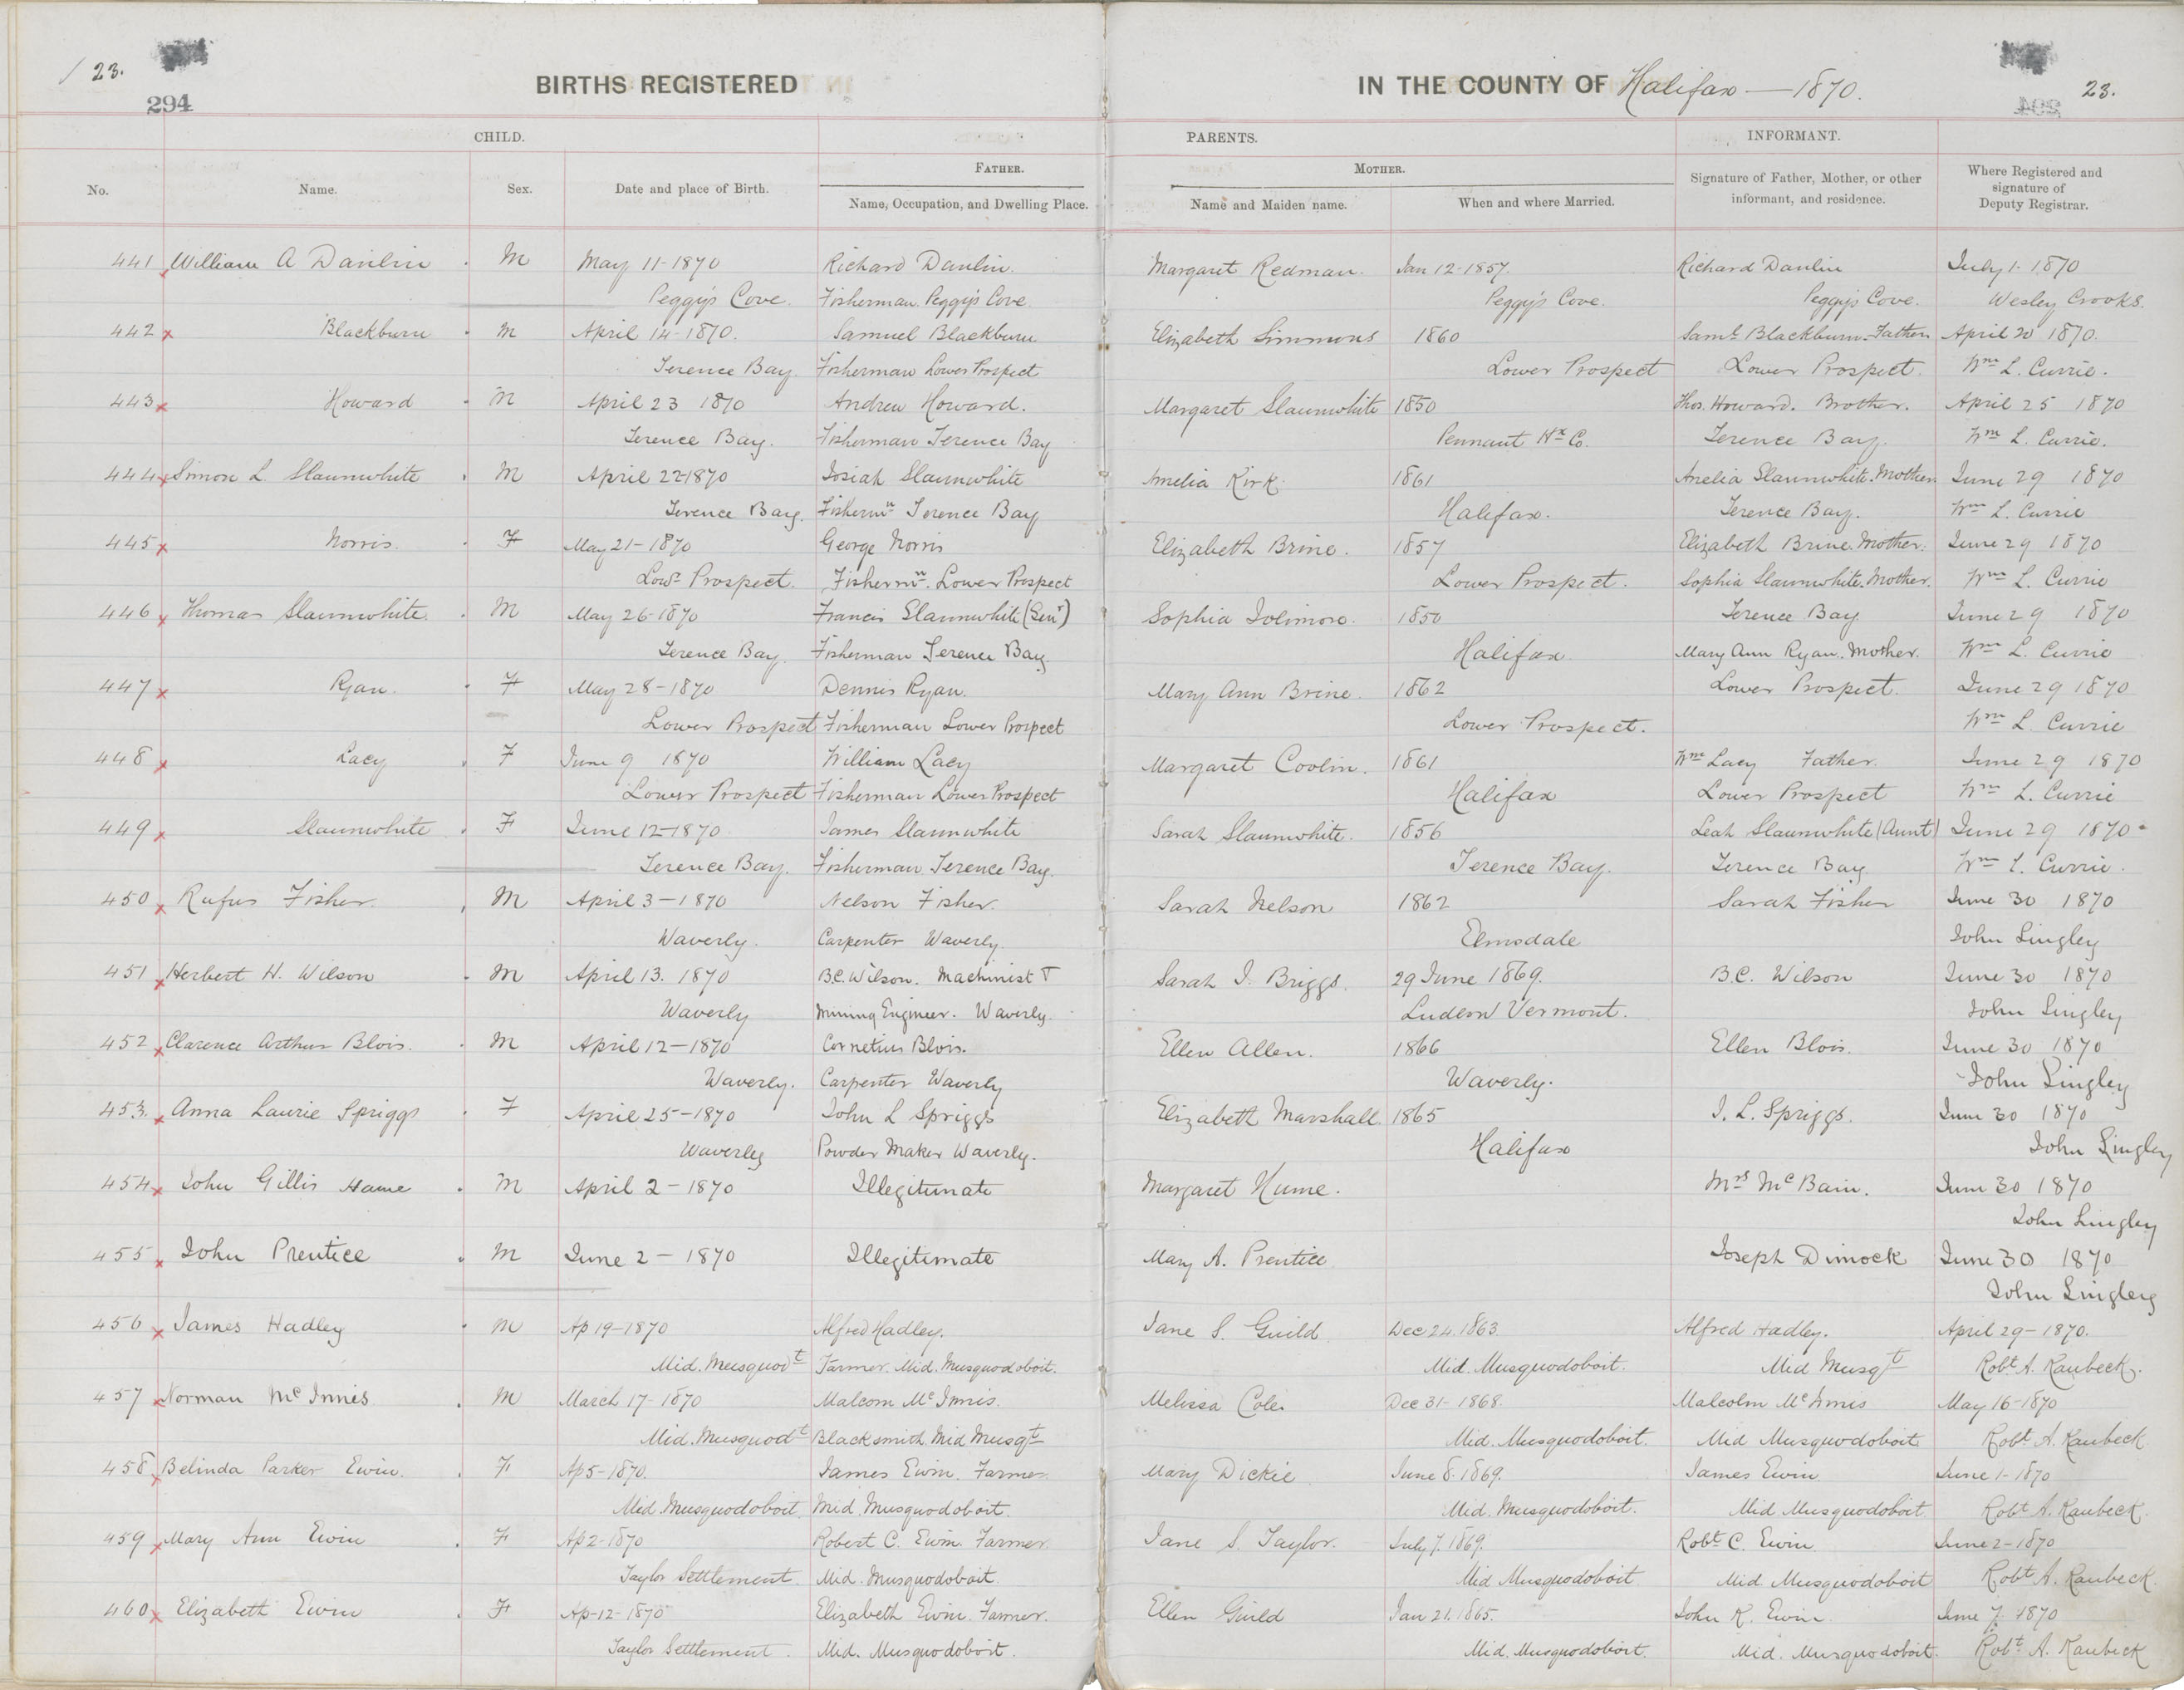 / 23.
294
BIRTHS REGISTERED
IN THE COUNTY OF Halifax — 1870.
23.
CHILD.
PARENTS.
INFORMANT.
No.
Name.
Sex.
Date and place of Birth.
FATHER.
Name, Occupation, and Dwelling Place.
MOTHER.
Name and Maiden name.
When and where Married.
Signature of Father, Mother, or other
informant, and residence.
Where Registered and
signature of
Deputy Registrar.
441 William A Danlin M May 11-1870 Richard Danlin. Margaret Redman. Jan 12-1857. Richard Danlin July 1. 1870
Peggy's Cove. Fisherman. Peggy's Cove. Peggy's Cove. Peggy's Cove. Wesley Crooks.
442 Blackburn M April 14-1870. Samuel Blackburn Elizabeth Simmons 1860 Saml Blackburn. Father April 20 1870.
Terence Bay. Fisherman Lower Prospect Lower Prospect Lower Prospect. Wm L. Currie.
443 Howard M April 23 1870 Andrew Howard. Margaret Slaunwhite 1850 Thos. Howard. Brother. April 25 1870
Terence Bay. Fisherman Terence Bay Pennant Hx Co. Terence Bay. Wm L. Currie.
444 Simon L. Slaunwhite M April 22-1870 Josiah Slaunwhite Amelia Kirk 1861 Amelia Slaunwhite. Mother June 29 1870
Terence Bay. Fishermn Terence Bay Halifax. Terence Bay. Wm L. Currie
445 Norris. F May 21-1870 George Norris Elizabeth Brine. 1857 Elizabeth Brine. Mother. June 29 1870
Lowr Prospect. Fishermn. Lower Prospect Lower Prospect. Sophia Slaunwhite. Mother. Wm L. Currie
446 Thomas Slaunwhite. M May 26-1870 Francis Slaunwhite (Senr) Sophia Jolimore. 1850 Terence Bay June 29 1870
Terence Bay. Fisherman Terence Bay. Halifax. Mary Ann Ryan. Mother. Wm L. Currie
447 Ryan. F May 28-1870 Dennis Ryan. Mary Ann Brine. 1862 Lower Prospect. June 29 1870
Lower Prospect Fisherman Lower Prospect Lower Prospect. Wm L. Currie
448 Lacy F June 9 1870 William Lacy Margaret Coolin. 1861 Wm Lacy Father. June 29 1870
Lower Prospect Fisherman Lower Prospect Halifax Lower Prospect Wm L. Currie
449 Slaunwhite F June 12-1870 James Slaunwhite Sarah Slaunwhite. 1856 Leah Slaunwhite (Aunt) June 29 1870
Terence Bay. Fisherman Terence Bay. Terence Bay. Terence Bay Wm L. Currie.
450 Rufus Fisher. M April 3-1870 Nelson Fisher. Sarah Nelson 1862 Sarah Fisher June 30 1870
Waverly. Carpenter Waverly Elmsdale John Lingley
451 Herbert H. Wilson M April 13. 1870 B.C. Wilson. Machinist & Sarah J. Briggs. 29 June 1869. B.C. Wilson June 30 1870
Waverly Mining Engineer. Waverly. Vermont. John Lingley
452 Clarence Arthur Blois. M April 12-1870 Cornelius Blois. Ellen Allen. 1866 Ellen Blois. June 30 1870
Waverly. Carpenter Waverly Waverly. John Lingley
453. Anna Laurie Spriggs F April 25-1870 John L Spriggs Elizabeth Marshall. 1865 J. L. Spriggs. June 30 1870
Waverley Powder Maker Waverly. Halifax John Lingley
454 John Gillis Hume M April 2-1870 Illegitimate Margaret Hume. Mrs McBain. June 30 1870
John Lingley
455 John Prentice M June 2-1870 Illegitimate Mary A. Prentice Joseph Dimock June 30 1870
John Lingley
456 James Hadley M Ap 19-1870 Alfred Hadley. Jane S. Guild Dec 24. 1863. Alfred Hadley. April 29-1870.
Mid. Musquodt Farmer. Mid. Musquodoboit. Mid. Musquodoboit. Mid Musqt Robt A. Kaubeck.
457 Norman McInnis M March 17-1870 Malcom McInnis. Melissa Cole. Dec 31-1868. Malcolm McInnis May 16-1870
Mid. Musquodt Blacksmith Mid Musqt Mid. Musquodoboit. Mid Musquodoboit Robt A. Kaubeck
458 Belinda Parker Ewin. F Ap 5-1870. James Ewin. Farmer. Mary Dickie June 8. 1869. James Ewin June 1-1870
Mid Musquodoboit Mid Musquodoboit. Mid. Musquodoboit. Mid Musquodoboit Robt A. Kaubeck.
459 Mary Ann Ewin F Ap 2-1870 Robert C. Ewin. Farmer. Jane S. Taylor. July 7. 1869. Robt C. Ewin June 2-1870
Taylor Settlement. Mid. Musquodoboit. Mid Musquodoboit Mid. Musquodoboit Robt A. Kaubeck.
460 Elizabeth Ewin F Ap-12-1870 Elizabeth Ewin. Farmer. Ellen Guild Jan 21. 1865. John K. Ewin. June 7. 1870
Taylor Settlement. Mid. Musquodoboit. Mid. Musquodoboit. Mid. Musquodoboit. Robt A. Kaubeck